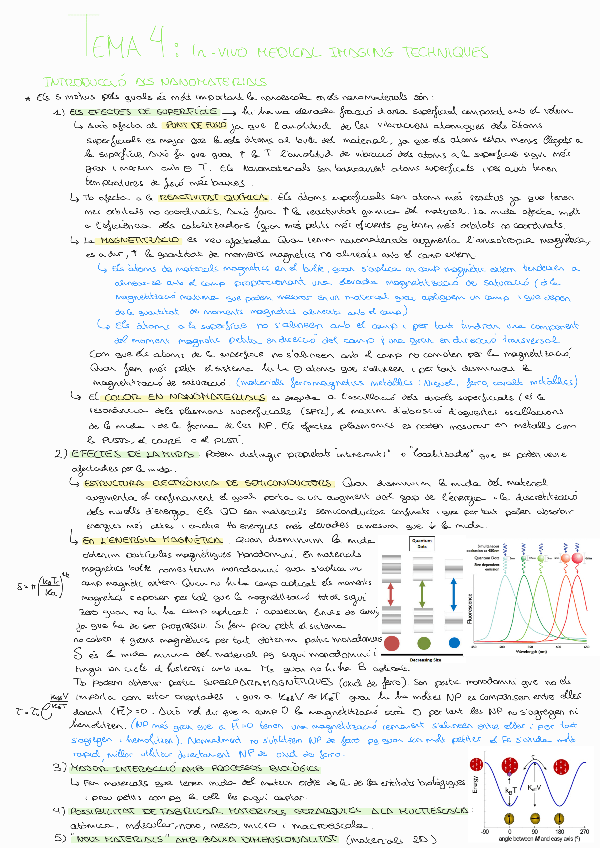 TEMA 4: IN-VIVO MEDICAL IMAGING TECHNIQUES
INTRODUCCIÓ ALS NANOMATERIALS
* Els 5 motius pels quals és més important la nanoescala en els nanomaterials són:
1) ELS EFECTES DE SUPERFÍCIE → hi ha una elevada fracció d'àrea superficial comparat amb el volum
↳ Això afecta al PUNT DE FUSIÓ ja que l'amplitud de les vibracions atòmiques dels àtoms
superficials és major que la dels àtoms al bulk del material, ja que els àtoms estan menys lligats a
la superfície. Això fa que quan ↑ la T l'amplitud de vibració dels àtoms a la superfície sigui més
gran i marxin amb T. Els nanomaterials són bàsicament àtoms superficials i per això tenen
temperatures de fusió més baixes.
↳ Tb afecta a la REACTIVITAT QUÍMICA. Els àtoms superficials són àtoms més reactius ja que tenen
més orbitals no coordinats. Això farà ↑ la reactivitat química del material. La mida afecta molt
a l'eficiència dels catalitzadors (quan més petits més eficients pq tenen més orbitals no coordinats
↳ La MAGNETITZACIÓ es veu afectada. Quan tenim nanomaterials augmenta l'anisotropia magnètica,
és a dir, ↑ la quantitat de moments magnètics no alineats amb el camp extern
↳ Els àtoms de materials magnètics en el bulk, quan s'aplica un camp magnètic extern tendeixen a
alinear-se amb el camp proporcionant una elevada magnetització de saturació (és la
magnetització màxima que podem mesurar en un material quan apliquem un camp i que depèn
de la quantitat de moments magnètics alineats amb el camp)
↳ Els àtoms a la superfície no s'alineen amb el camp i per tant tindran una component
del moment magnètic petita en direcció del camp i una gran en direcció transversal
Com que els àtoms de la superfície no s'alineen amb el camp no compten per la magnetització.
Quan fem més petit el sistema hi ha àtoms que s'alineen i per tant disminueix la
magnetització de saturació (materials ferromagnètics metàl·lics: Niquel, ferro, cobalt metàl·lics)
↳ El COLOR EN NANOMATERIALS és degut a l'oscil·lació dels electrons superficials (és la
ressonància dels plasmons superficials (SPR), el màxim d'absorció d'aquestes oscil·lacions
de la mida i de la forma de les NP. Els efectes plasmònics es poden mesurar en metalls com
la PLATA, el COURE o el
2) EFECTES DE LA MIDA: Podem distingir propietats "inherents" o "localitzades" que es poden veure
afectades per la mida.
↳ ESTRUCTURA ELECTRÒNICA DE SEMICONDUCTORS: Quan disminuïm la mida del material
augmenta el confinament el qual porta a un augment del gap de l'energia i la discretització
dels nivells d'energia. Els QD són materials semiconductors confinats i que per tant poden absorbir
energies més altes i emetre tb energies més elevades a mesura que ↓ la mida.
↳ En L'ENERGIA MAGNÈTICA. Quan disminuïm la mida
obtenim partícules magnètiques monodomini. En materials
magnètics bulk només tenim monodomini quan s'aplica un
camp magnètic extern. Quan no hi ha camp aplicat els moments
magnètics es oposen per tal que la magnetització total sigui
zero quan no hi ha camp aplicat i apareixen
ja que ha de ser progressiu. Si fem prou petit el sistema
no caben + grans magnètics per tant obtenim partic monodomini
S és la mida mínima del material pq sigui monodomini i
tingui un cicle d'histèresi amb una Mr quan no hi ha B aplicat.
Tb podem obtenir partic SUPERPARAMAGNÈTIQUES (òxid de ferro). Són partic monodomini que no els
importa com estar orientades i que a KeffV ≈ KBT quan hi ha moltes NP es compensen entre elles
donant ⟨M⟩=0. Això vol dir que a camp 0 la magnetització serà 0 per tant les NP no s'agreguen ni
hemolitzen (NP més gran que a H=0 tenen una magnetització remanent s'alineen entre elles i per tant
s'agreguen i hemolitzen). Normalment no s'utilitzen NP de ferro pq quan són molt petites el Fe s'oxida molt
ràpid, millor utilitzar directament NP de òxid de ferro.
3) MAJOR INTERACCIÓ AMB PROCESSOS BIOLÒGICS
↳ Fem materials que tenen mida del mateix ordre de la de les entitats biològiques
i prou petits com pq la cèl·l les pugui captar
4) POSSIBILITAT DE FABRICAR MATERIALS JERÀRQUICS A LA MULTIESCALA:
atòmica, molecular, nano, meso, micro i macroescala.
5) "NOUS MATERIALS" AMB BAIXA DIMENSIONALITAT (materials 2D)
Quantum
Dots
Decreasing Size
Simultaneous
excitation at 488nm
Quantum Dots
Size dependent
emission
Fluorescence
Wavelength (nm)
Energy
kBT
KeffV
-90 0 90 180 270
angle between M and easy axis (°)